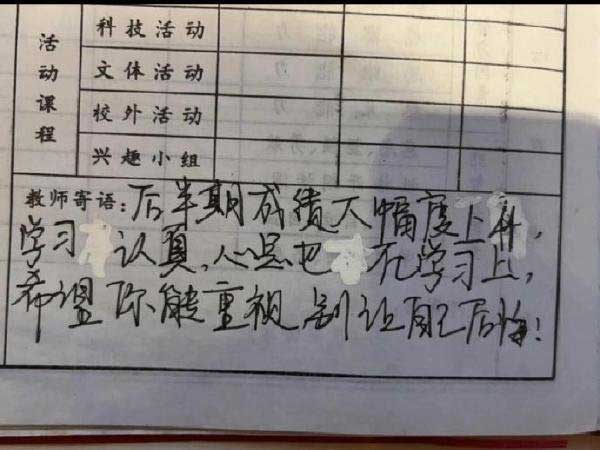 活动课程
科技活动
文体活动
校外活动
兴趣小组
教师寄语：后半期成绩大幅度上升，
学习 认真，心思也 在学习上，
希望你能重视，别让自己后悔！